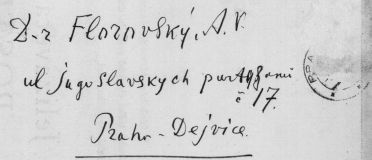 D-r Florovský, A.V.
ul Jugoslavskych partyzanů
č 17.
Praha-Dejvice